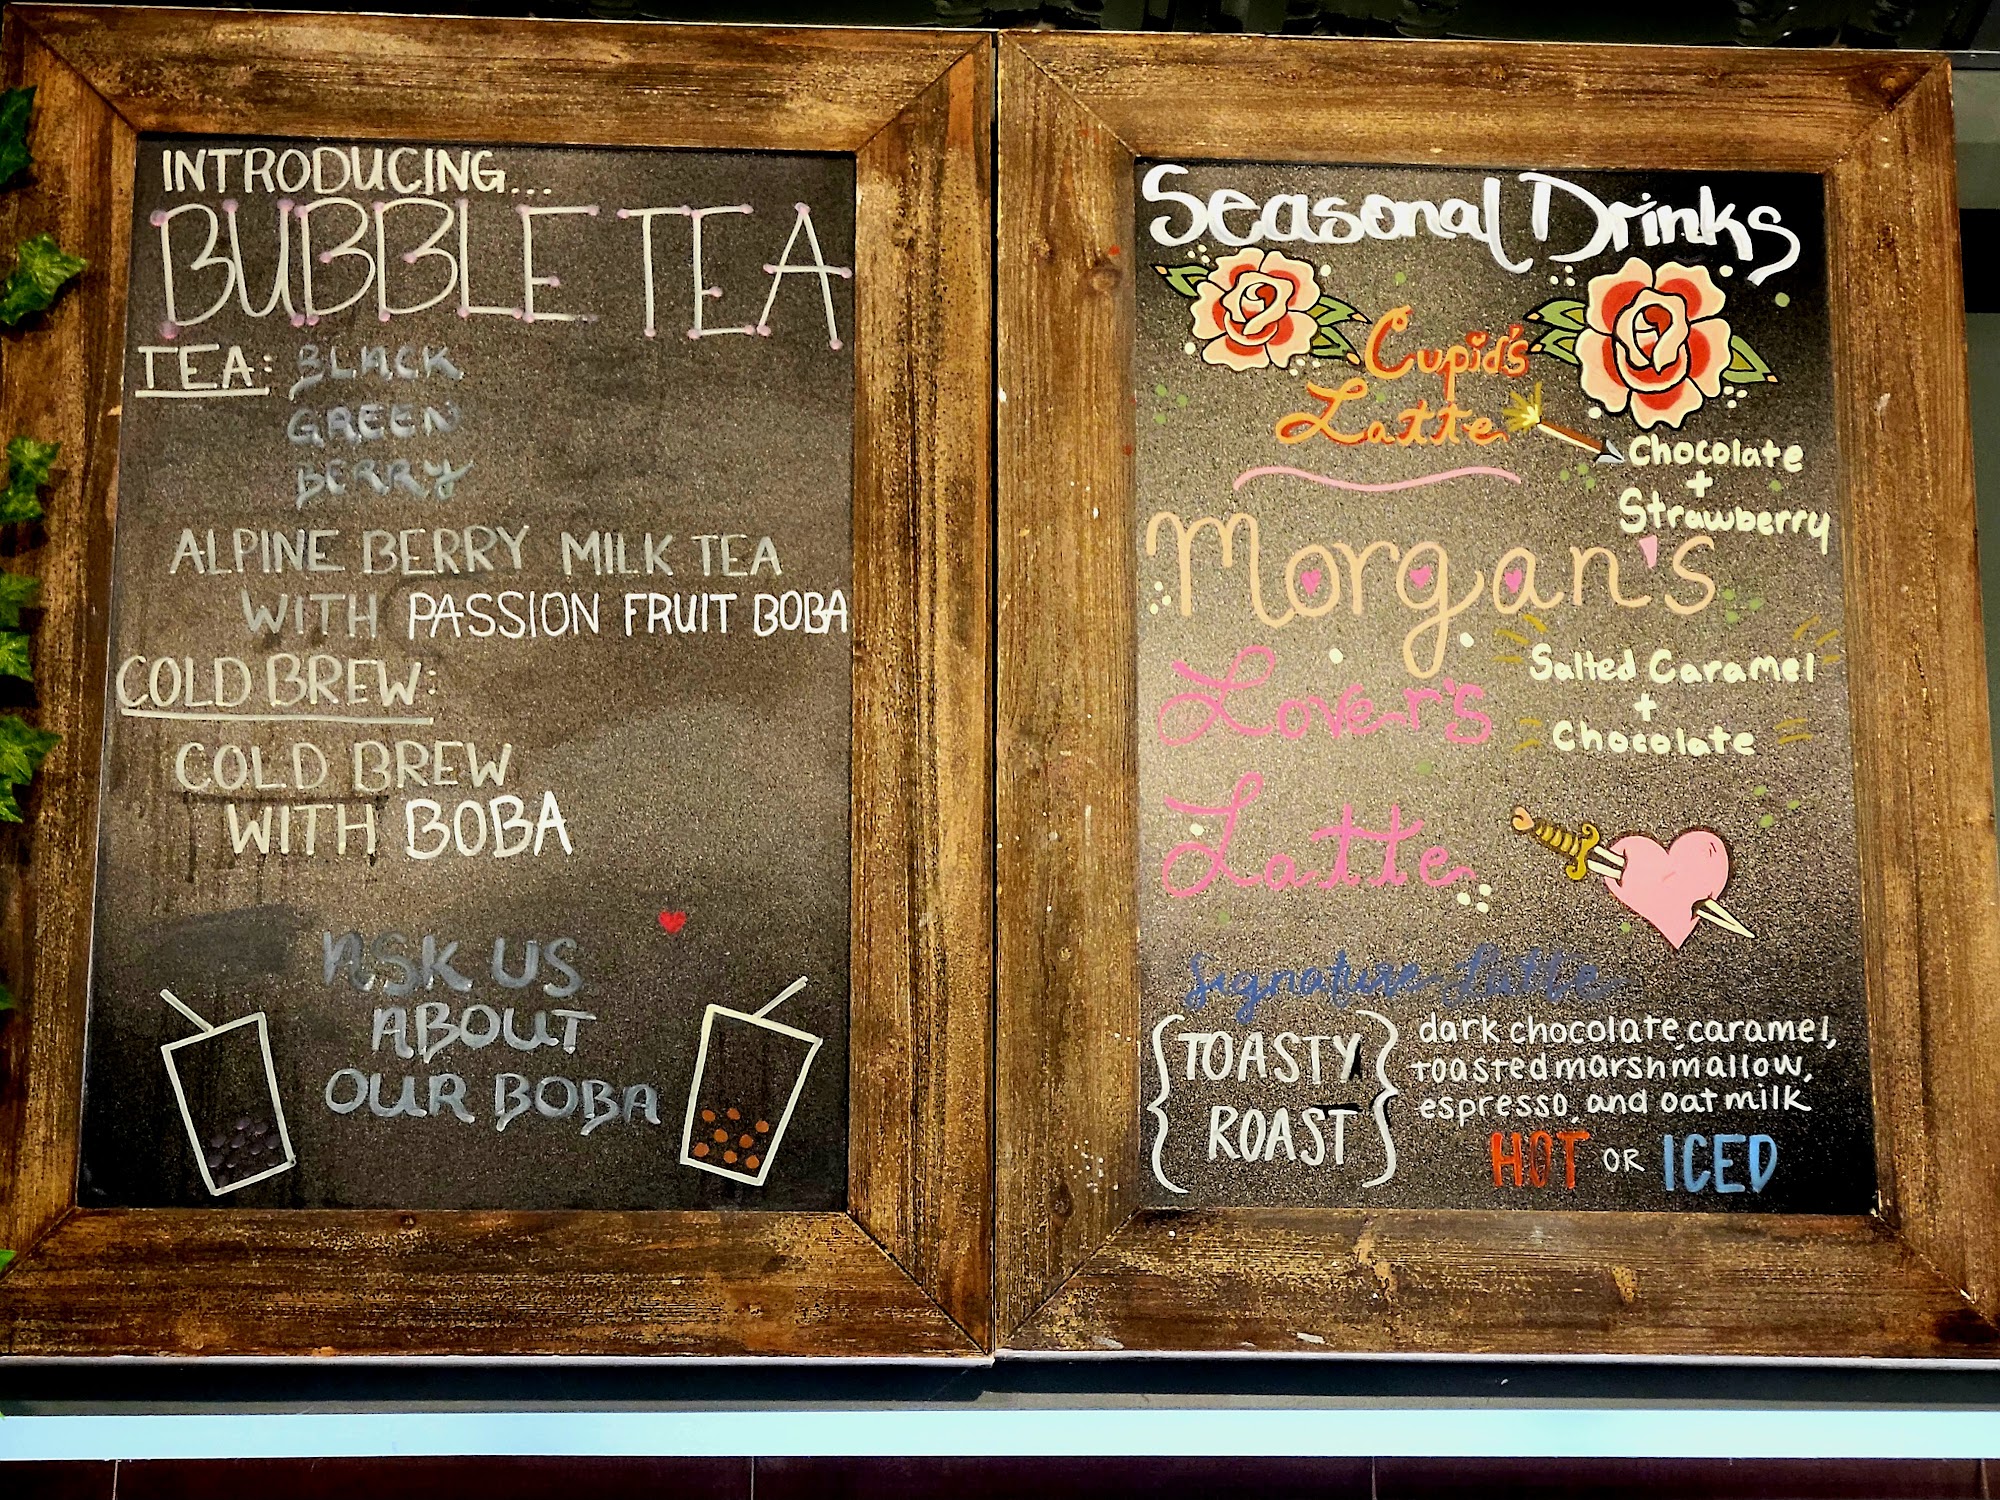 INTRODUCING...
BUBBLE TEA
TEA: BLACK
GREEN
BERRY
ALPINE BERRY MILK TEA
WITH PASSION FRUIT BOBA
COLD BREW:
COLD BREW
WITH BOBA
ASK US
ABOUT
OUR BOBA
Seasonal Drinks
Cupid's
Latte
Chocolate
+
Strawberry
Morgan's
Lover's
Latte
Salted Caramel
+
Chocolate
Signature Latte
{TOASTY
ROAST}
dark chocolate, caramel,
toasted marshmallow,
espresso, and oat milk
HOT OR ICED